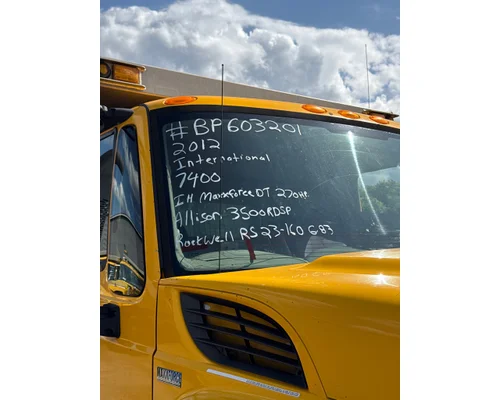 #BP603201
2012
International
7400
IH Maxxforce DT 270HP
Allison 3500RDSP
Rockwell RS23-160 683